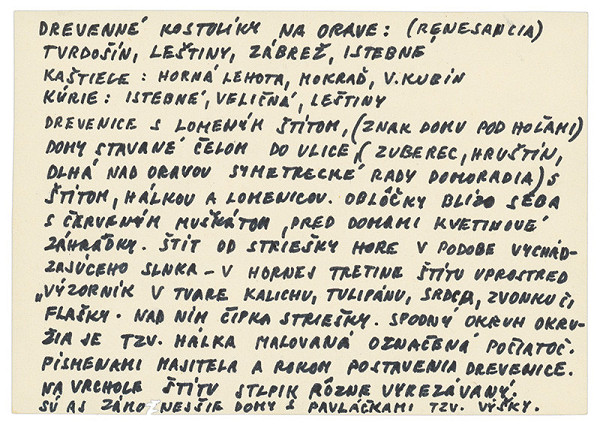 DREVENNÉ KOSTOLÍKY NA ORAVE: (RENESANCIA)
TVRDOŠÍN, LEŠTINY, ZÁBREŽ, ISTEBNÉ
KAŠTIELE: HORNÁ LEHOTA, MOKRAĎ, V. KUBÍN
KÚRIE: ISTEBNÉ, VELIČNÁ, LEŠTINY
DREVENICE S LOMENÝM ŠTÍTOM, (ZNAK DOMU POD HOĽAMI)
DOMY STAVANÉ ČELOM DO ULICE, ( ZUBEREC, HRUŠTÍN,
DLHÁ NAD ORAVOU SYMETRECKÉ RADY DOMORADIA) S
ŠTÍTOM, HÁLKOU A LOMENICOV. OBLÔČKY BLIZO SEBA
S ČERVENÝM MUŠKÁTOM, PRED DOMAMI KVETINOVÉ
ZÁHRÁDKY. ŠTÍT OD STRIEŠKY HORE V PODOBE VYCHÁD-
ZAJÚCEHO SLNKA - V HORNEJ TRETINE ŠTÍTU UPROSTRED
„VÝZORNÍK V TVARE KALICHU, TULIPÁNU, SRDCA, ZVONKU ČI
FLAŠKY. NAD NÍM ČIPKA STRIEŠKY. SPODNÝ OKRUH OKRU-
ŽIA JE TZV. HÁLKA MAĽOVANÁ OZNAČENÁ POČIATOČ.
PÍSMENAMI MAJITEĽA A ROKOM POSTAVENIA DREVENICE.
NA VRCHOLE ŠTÍTU STĹPIK RÔZNE VYREZÁVANÝ.
SÚ AS ZÁMOŽNEJŠIE DOMY S PAVLÁČKAMI TZV. VÝŠKY.